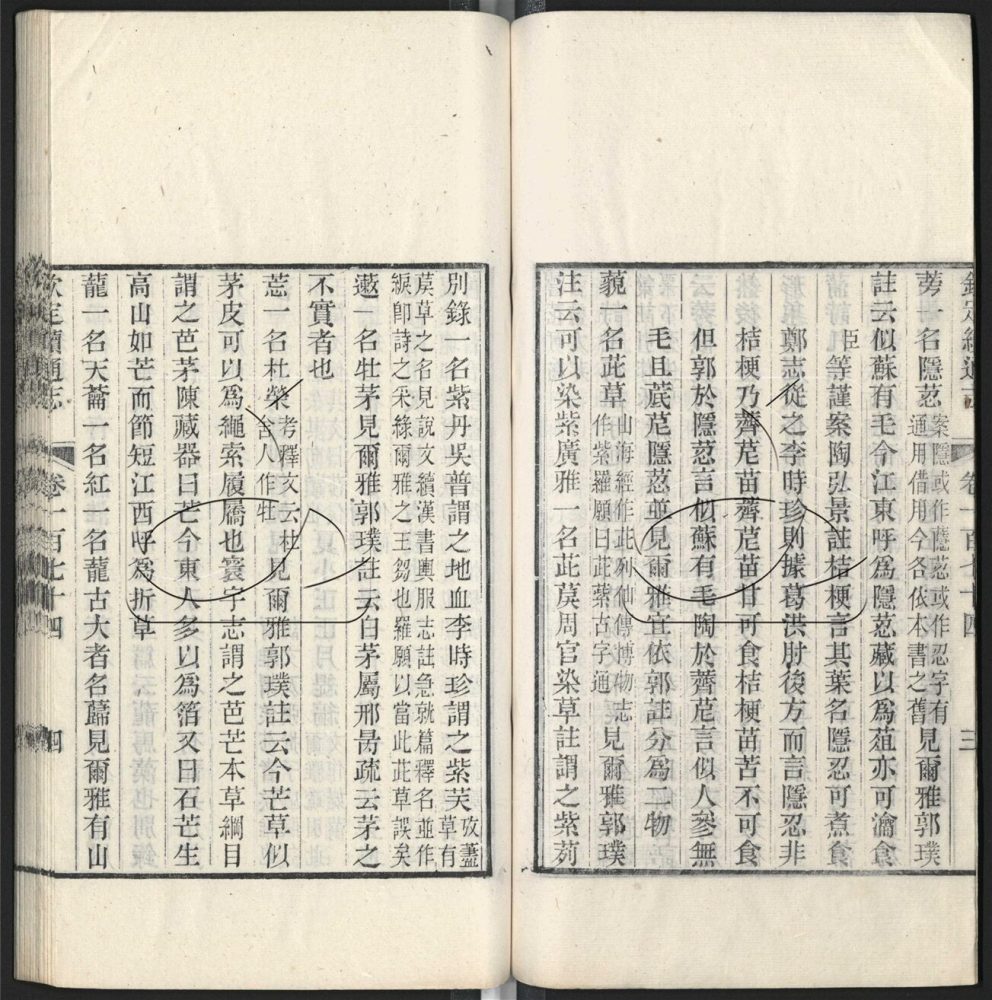 蒡一名隱荵案隱或作蘟荵或作忍字有通用借用今各依本書之舊見爾雅郭璞
註云似蘇有毛今江東呼為隱荵藏以為葅亦可瀹食
臣等謹案陶弘景註桔梗言其葉名隱忍可煮食
鄭志從之李時珍則據葛洪肘後方而言隱忍非
桔梗乃薺苨苗薺苨苗甘可食桔梗苗苦不可食
但郭於隱荵言似蘇有毛陶於薺苨言似人參無
毛且菧苨隱荵並見爾雅宜依郭註分為二物
藐一名茈草山海經作茈列仙傳博物志作紫羅願曰茈紫古字通見爾雅郭璞
注云可以染紫廣雅一名茈䓞周官染草註謂之紫茢
卷一百七十四
三
別錄一名紫丹吳普謂之地血李時珍謂之紫芙攷藎草有
䓞草之名見說文續漢書輿服志註急就篇釋名並作
綟即詩之采綠爾雅之王芻也羅願以當此茈草誤矣
藗一名牡茅見爾雅郭璞註云白茅屬邢昺疏云茅之
不實者也
莣一名杜榮考釋文云杜舍人作牡見爾雅郭璞註云今芒草似
茅皮可以為繩索履屩也寰宇志謂之芭芒本草綱目
謂之芭茅陳藏器曰芒今東人多以為箔又曰石芒生
高山如芒而節短江西呼為折草
蘢一名天蘥一名紅一名蘢古大者名蘬見爾雅有山
欽定續通志
卷一百七十四
四